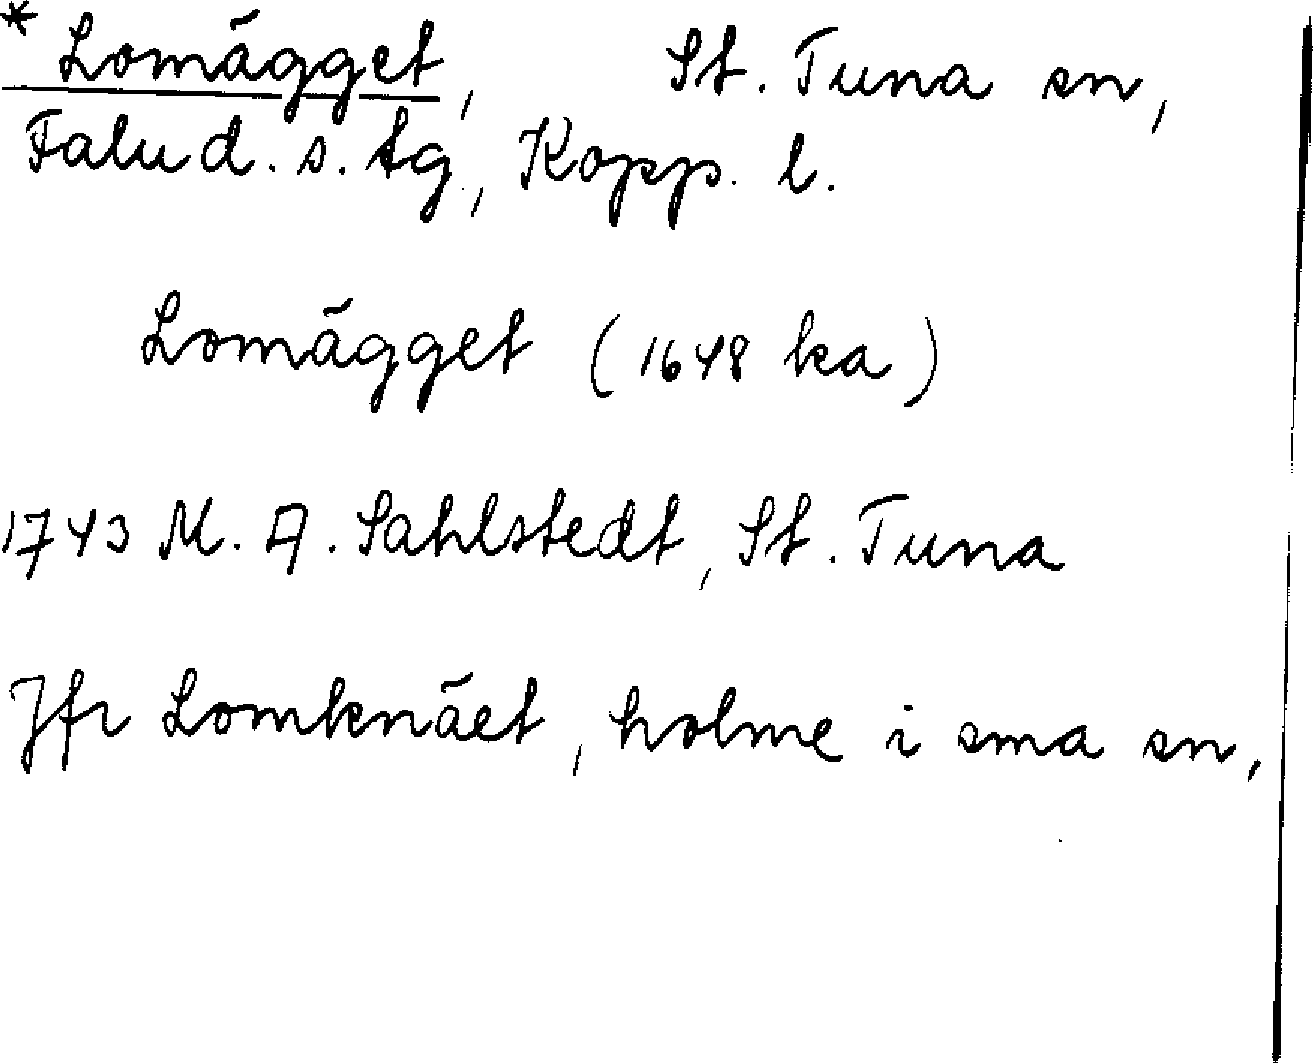 * Lomägget, St. Tuna sn,
Falu d. s. tg, Kopp. l.
Lomägget (1648 ka)
1743 M. A. Sahlstedt, St. Tuna
Jfr Lomknäet, holme i sma sn,